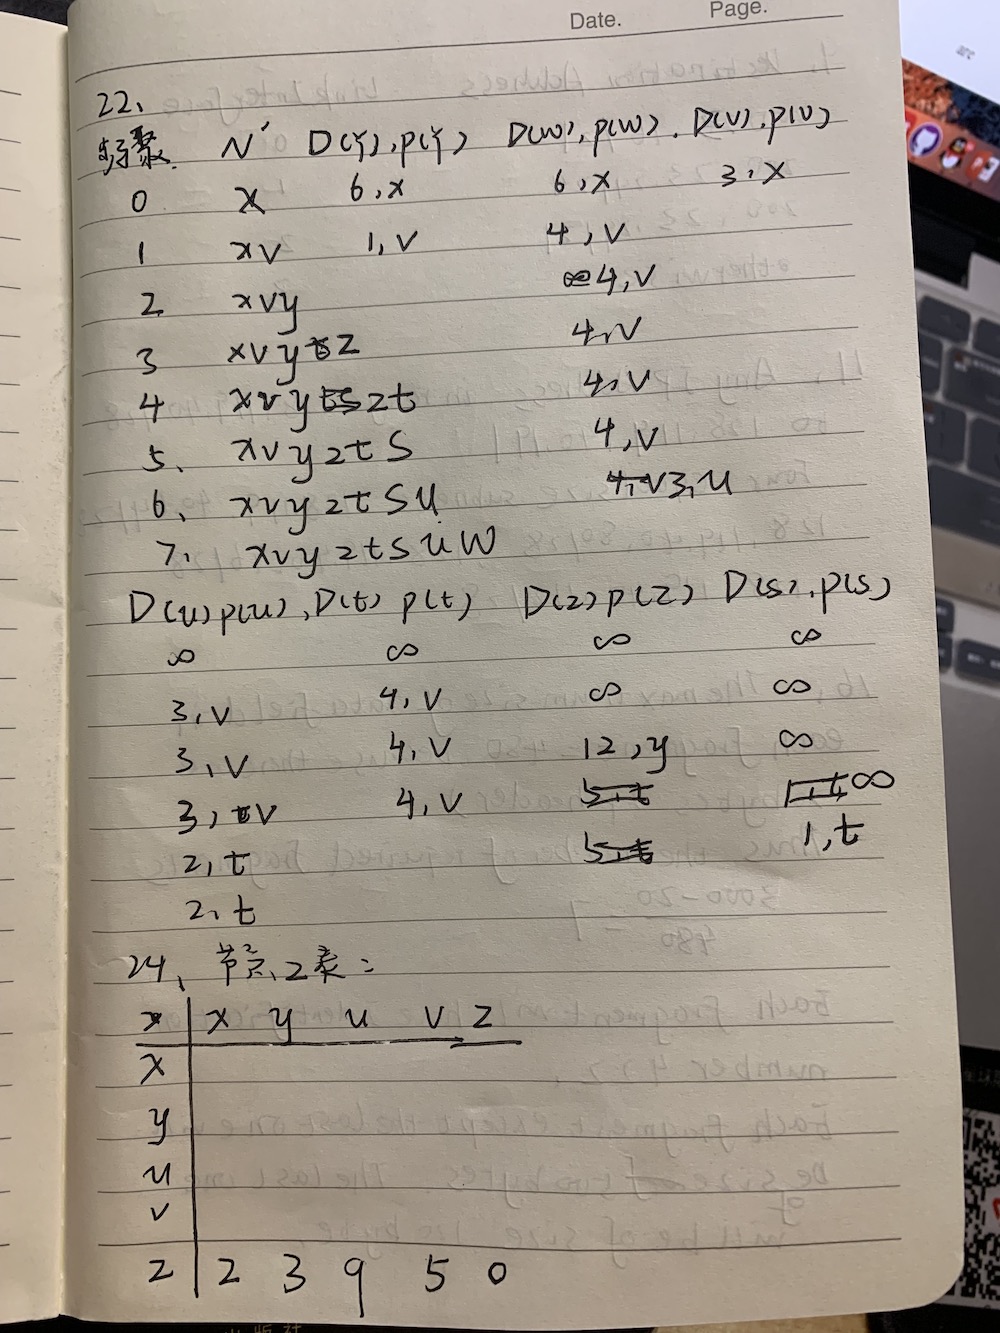 Date. Page.
22、
步骤 N' D(y),p(y) D(w),p(w). D(v).p(v)
0 x 6,x 6,x 3,x
1 xv 1,v 4,v
2 xvy 4,v
3 xvyz 4,v
4 xvyzt 4,v
5、 xvyztS 4,v
6、 xvyztSu 3,u
7. xvyztsuw
D(u)p(u), D(t) p(t) D(z)p(z) D(s),p(s)
∞ ∞ ∞ ∞
3,v 4,v ∞ ∞
3,v 4,v 12,y ∞
3,v 4,v ∞
2,t 1,t
2,t
24、节点Z表:
x y u v z
x
y
u
v
z 2 3 9 5 0